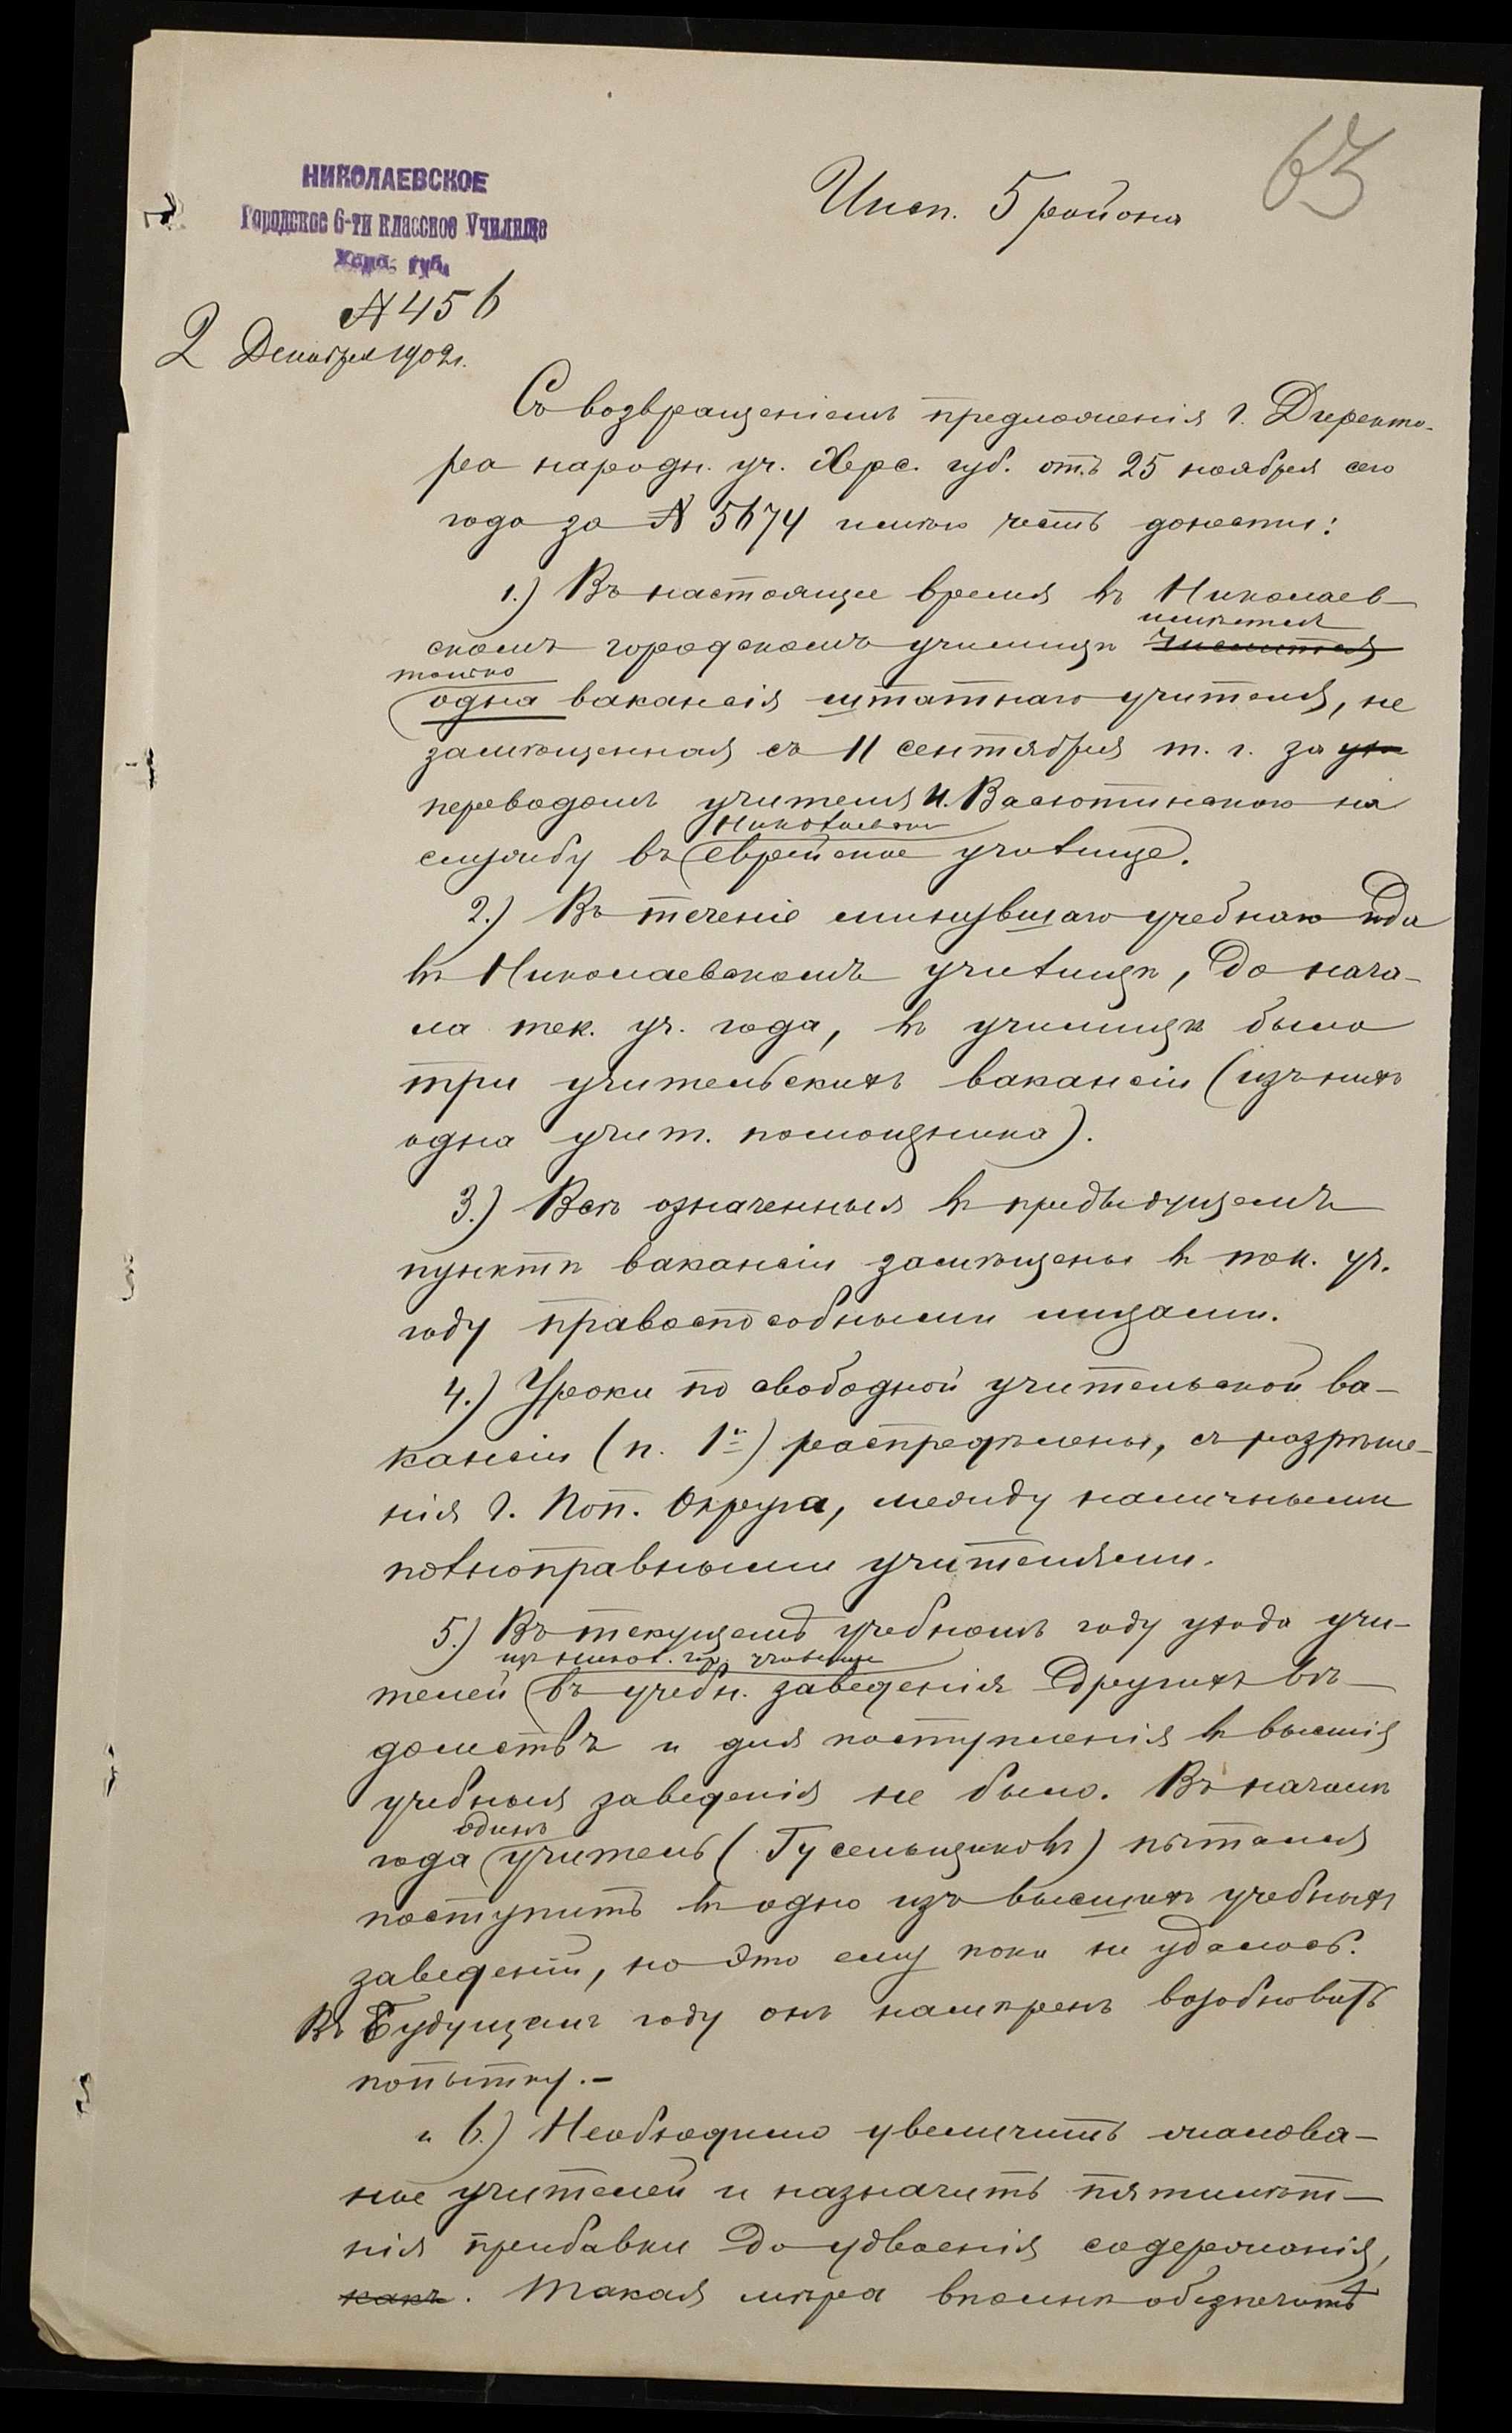 63
НИКОЛАЕВСКОЕ
Городское 6-ти классное Училище
Херс. губ.
Инсп. 5 района
№ 456
2 Декабря 1902 г.
Съ возвращеніемъ предложенія г. Директо-
ра народн. уч. Херс. губ. отъ 25 ноября сего
года за № 5674 имѣю честь донести:
1.) Въ настоящее время въ Николаев-
скомъ городскомъ училищѣ числится имѣется
только одна вакансія штатнаго учителя, не
замѣщенная съ 11 сентября т. г. за
переводомъ учителя И. Васютинскаго на
службу въ Николаевское еврейское училище.
2.) Въ теченіе минувшаго учебнаго года
въ Николаевскомъ училищѣ, до нача-
ла тек. уч. года, въ училищѣ было
три учительскихъ вакансіи (изъ нихъ
одна учит. помощника).
3.) Всѣ означенныя въ предыдущемъ
пунктѣ вакансіи замѣщены въ тек. уч.
году правоспособными лицами.
4.) Уроки по свободной учительской ва-
кансіи (п. 1й) распредѣлены, съ разрѣше-
нія г. Поп. Округа, между наличными
полноправными учителями.
5.) Въ текущемъ учебномъ году ухода учи-
телей изъ никол. гор. училища въ учебн. заведенія другихъ вѣ-
домствъ и для поступленія въ высшія
учебныя заведенія не было. Въ началѣ
года одинъ учитель (Гусельщиковъ) пытался
поступить въ одно изъ высшихъ учебныхъ
заведеній, но это ему пока не удалось.
Въ будущемъ году онъ намѣренъ возобновить
попытку.-
и 6.) Необходимо увеличить жалова-
ніе учителей и назначить пятилѣт-
нія прибавки до удвоенія содержанія,
какъ. Такая мѣра вполнѣ обезпечитъ